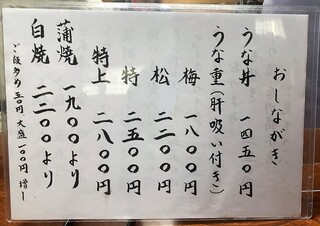 おしながき
うな丼 一四五〇円
うな重(肝吸い付き)
梅 一八〇〇円
松 二二〇〇円
特 二五〇〇円
特上 二八〇〇円
蒲焼 一九〇〇より
白焼 二二〇〇より
ご飯多め 五〇円 大盛 一〇〇円 増し